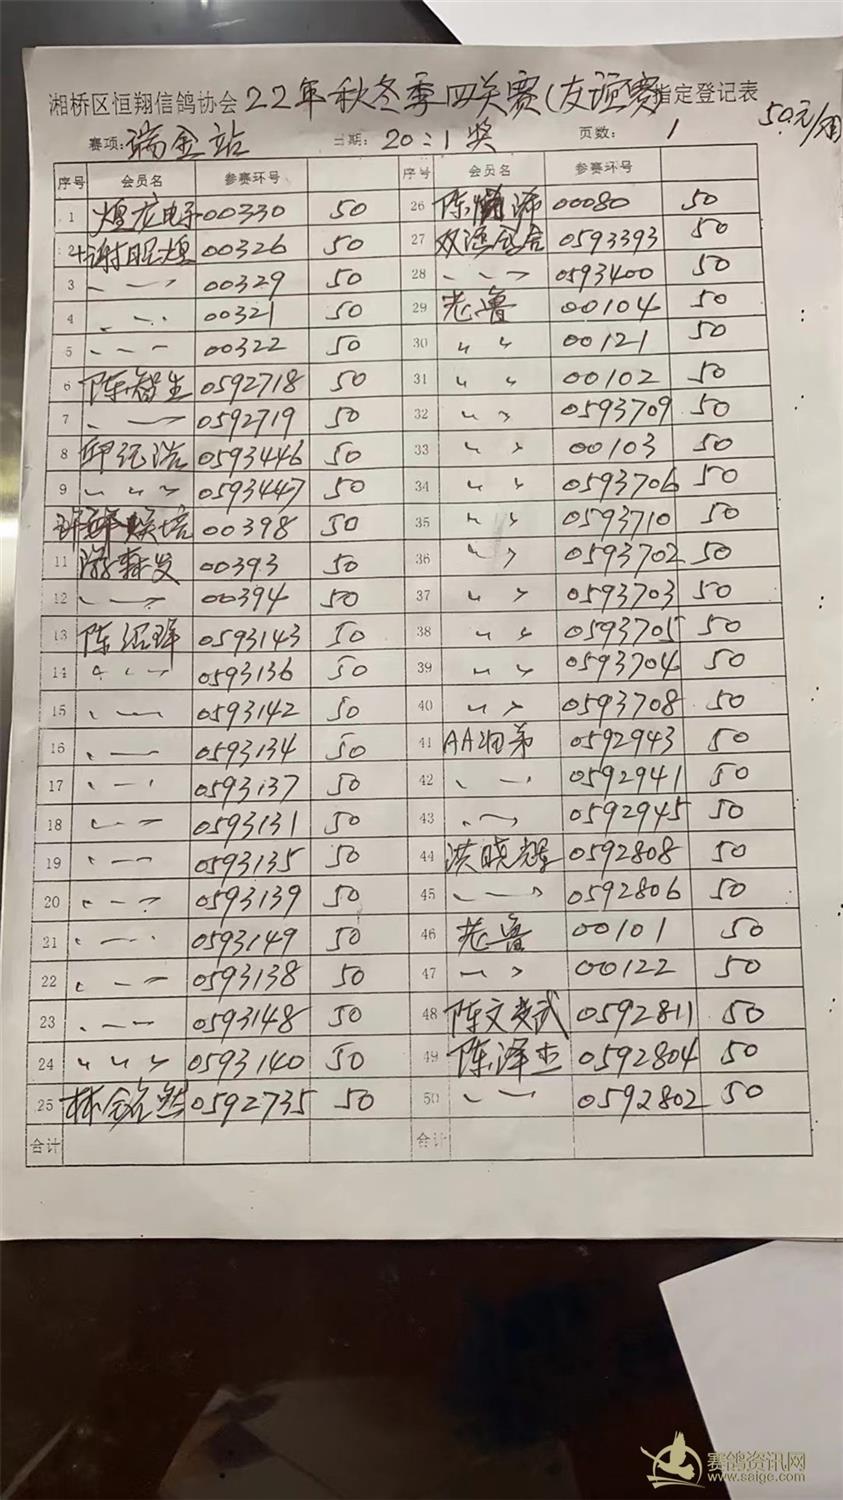 湘桥区恒翔信鸽协会22年秋冬季四关赛(友谊赛)指定登记表
赛项:瑞金站 日期: 20:1奖 页数: 1 50元/羽
序号 会员名 参赛环号 序号 会员名 参赛环号
1 煌龙电子 00330 50 26 陈 00080 50
2 谢昭煌 00326 50 27 双 0593393 50
3 〃 〃 00329 50 28 〃 〃 〃 0593400 50
4 〃 〃 00321 50 29 老鲁 00104 50
5 〃 〃 〃 00322 50 30 〃 〃 00121 50
6 陈智生 0592718 50 31 〃 〃 00102 50
7 〃 〃 0592719 50 32 〃 〃 0593709 50
8 邱 浩 0593446 50 33 〃 〃 00103 50
9 〃 〃 〃 0593447 50 34 〃 〃 0593706 50
培 00398 50 35 〃 〃 0593710 50
11 发 00393 50 36 〃 〃 0593702 50
12 〃 〃 00394 50 37 〃 〃 0593703 50
13 陈绍 0593143 50 38 〃 〃 0593705 50
14 〃 〃 〃 0593136 50 39 〃 〃 0593704 50
15 〃 〃 0593142 50 40 〃 〃 0593708 50
16 〃 〃 0593134 50 41 AA细弟 0592943 50
17 〃 〃 〃 0593137 50 42 〃 〃 0592941 50
18 〃 〃 0593131 50 43 〃 〃 0592945 50
19 〃 〃 〃 0593135 50 44 洪晓辉 0592808 50
20 〃 〃 〃 0593139 50 45 〃 〃 0592806 50
21 〃 〃 0593149 50 46 老鲁 00101 50
22 〃 〃 〃 0593138 50 47 〃 〃 00122 50
23 〃 〃 0593148 50 48 陈文 武 0592811 50
24 〃 〃 〃 0593140 50 49 陈泽杰 0592804 50
25 林 0592735 50 50 〃 〃 0592802 50
合计 合计
赛鸽资讯网
www.saige.com